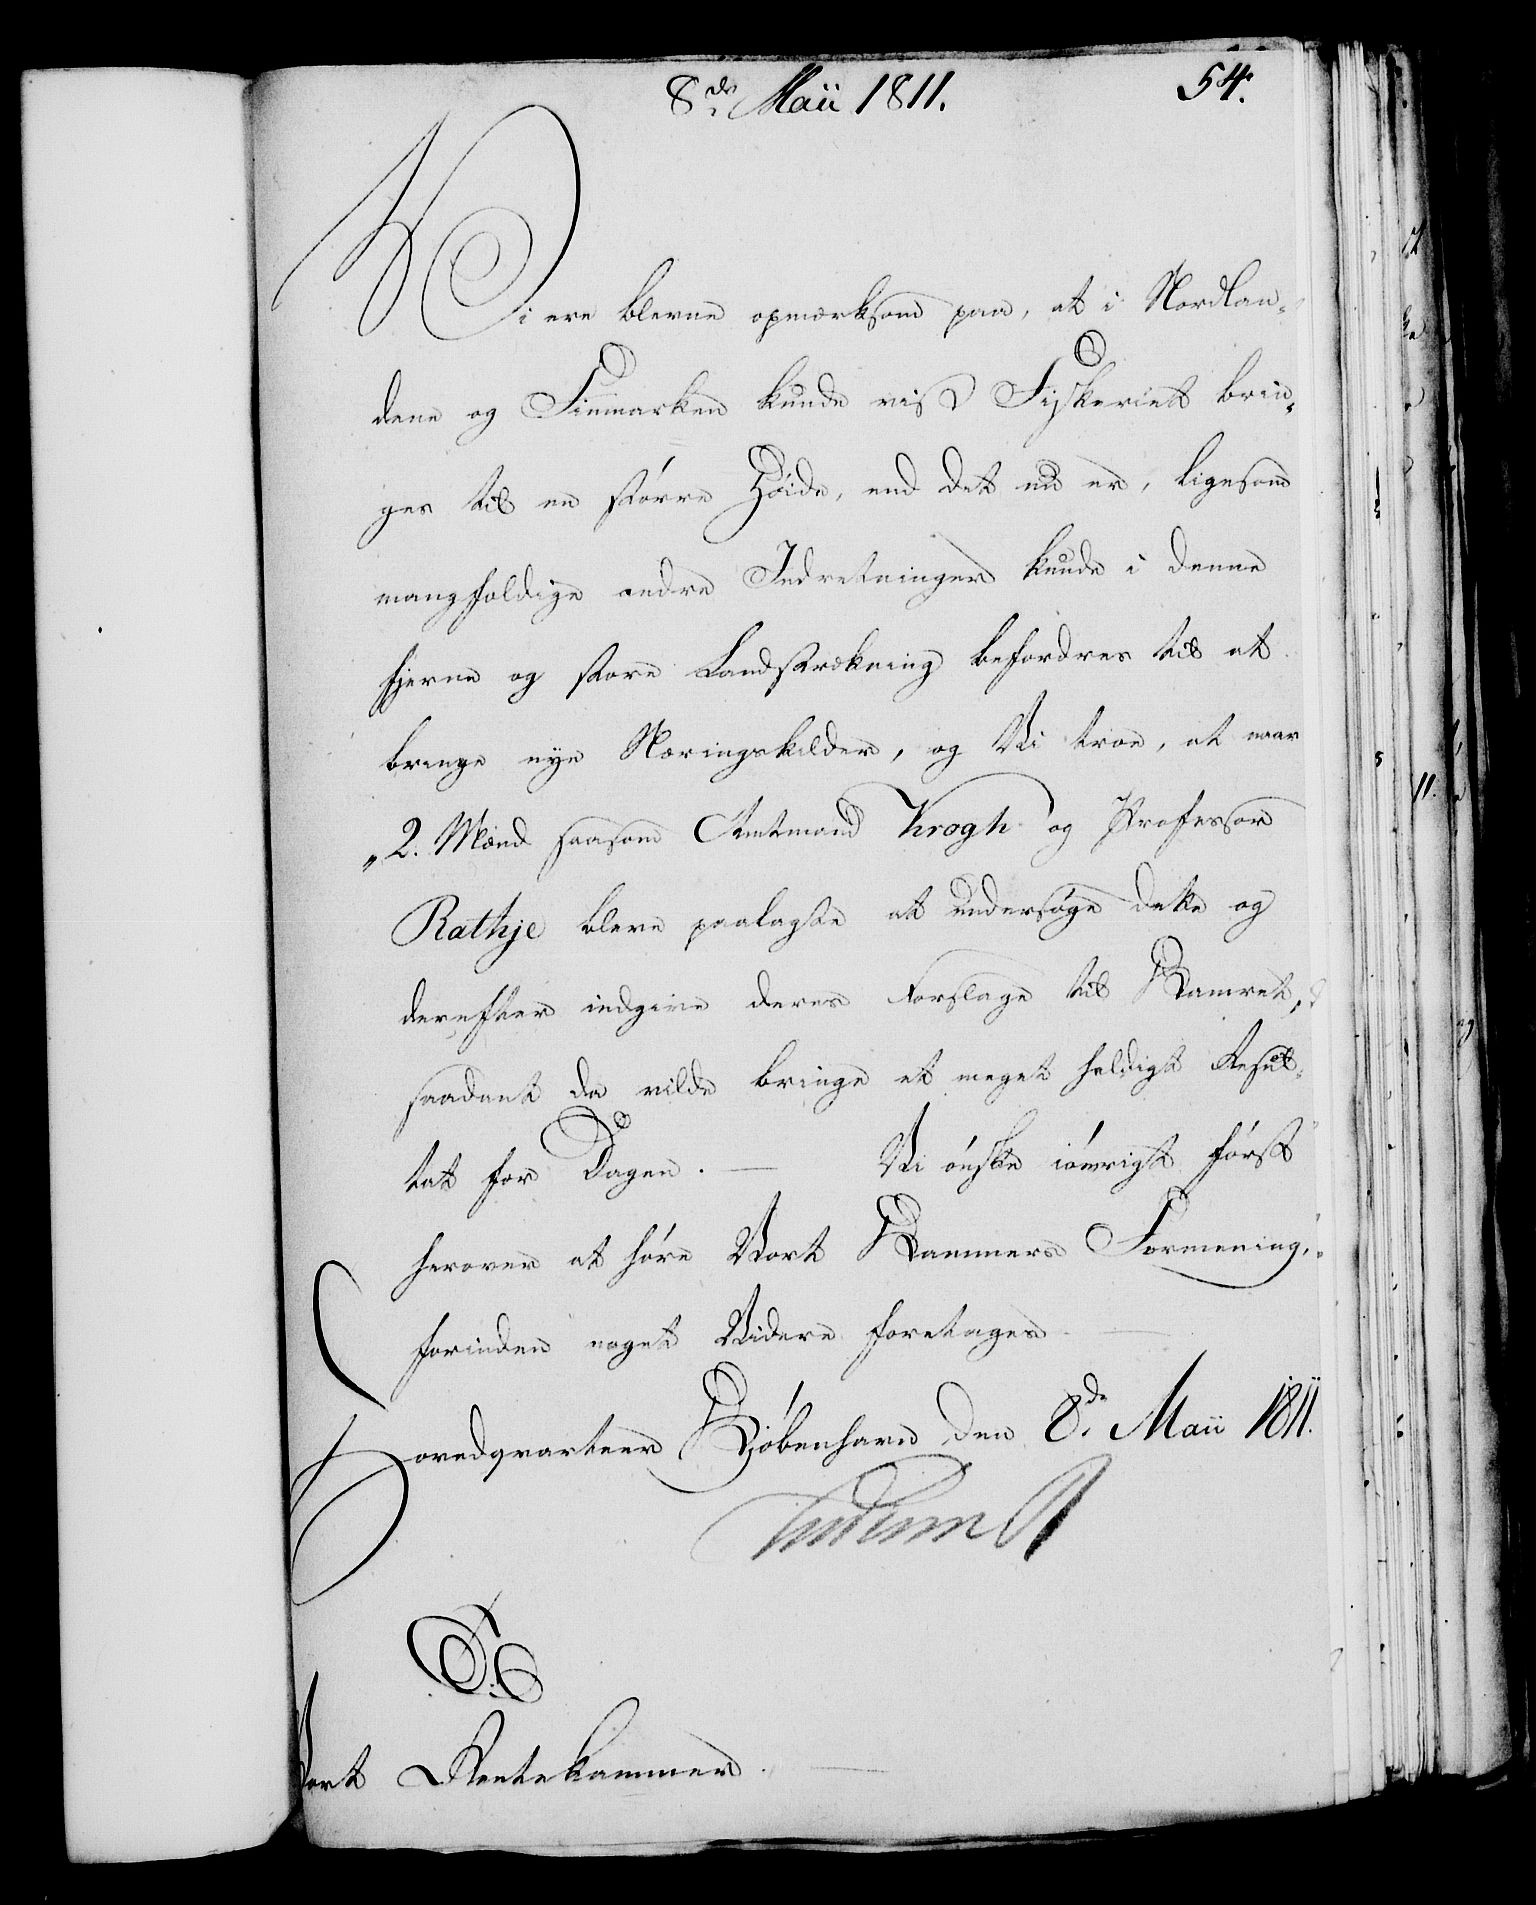 8de Maii 1811.
54.
Vi ere blevne opmærksom paa, at i Nordlan-
dene og Finmarken kunde vist Fiskeriet brin-
ges til en større Høide, end det nu er, ligesom
mangfoldige andre Indretninger kunde i denne
fjerne og store Landstrækning befordres til at
bringe nye Næringskilder, og Vi troe, at naar
2. Mænd saasom Amtmand Krogh og Professor
Rathje bleve paalagte at undersøge dette og
derefter indgive deres Forslage til Kamret,
saadant da vilde bringe et meget heldigt Resul-
tat for Dagen. — Vi ønske iøvrigt først
herover at høre Vort Kammers Formening,
forinden noget Videre foretages —
Hovedqvarteer Kiøbenhavn den 8de Maii 1811.
Frederik R
Til
Vort Rentekammer. —